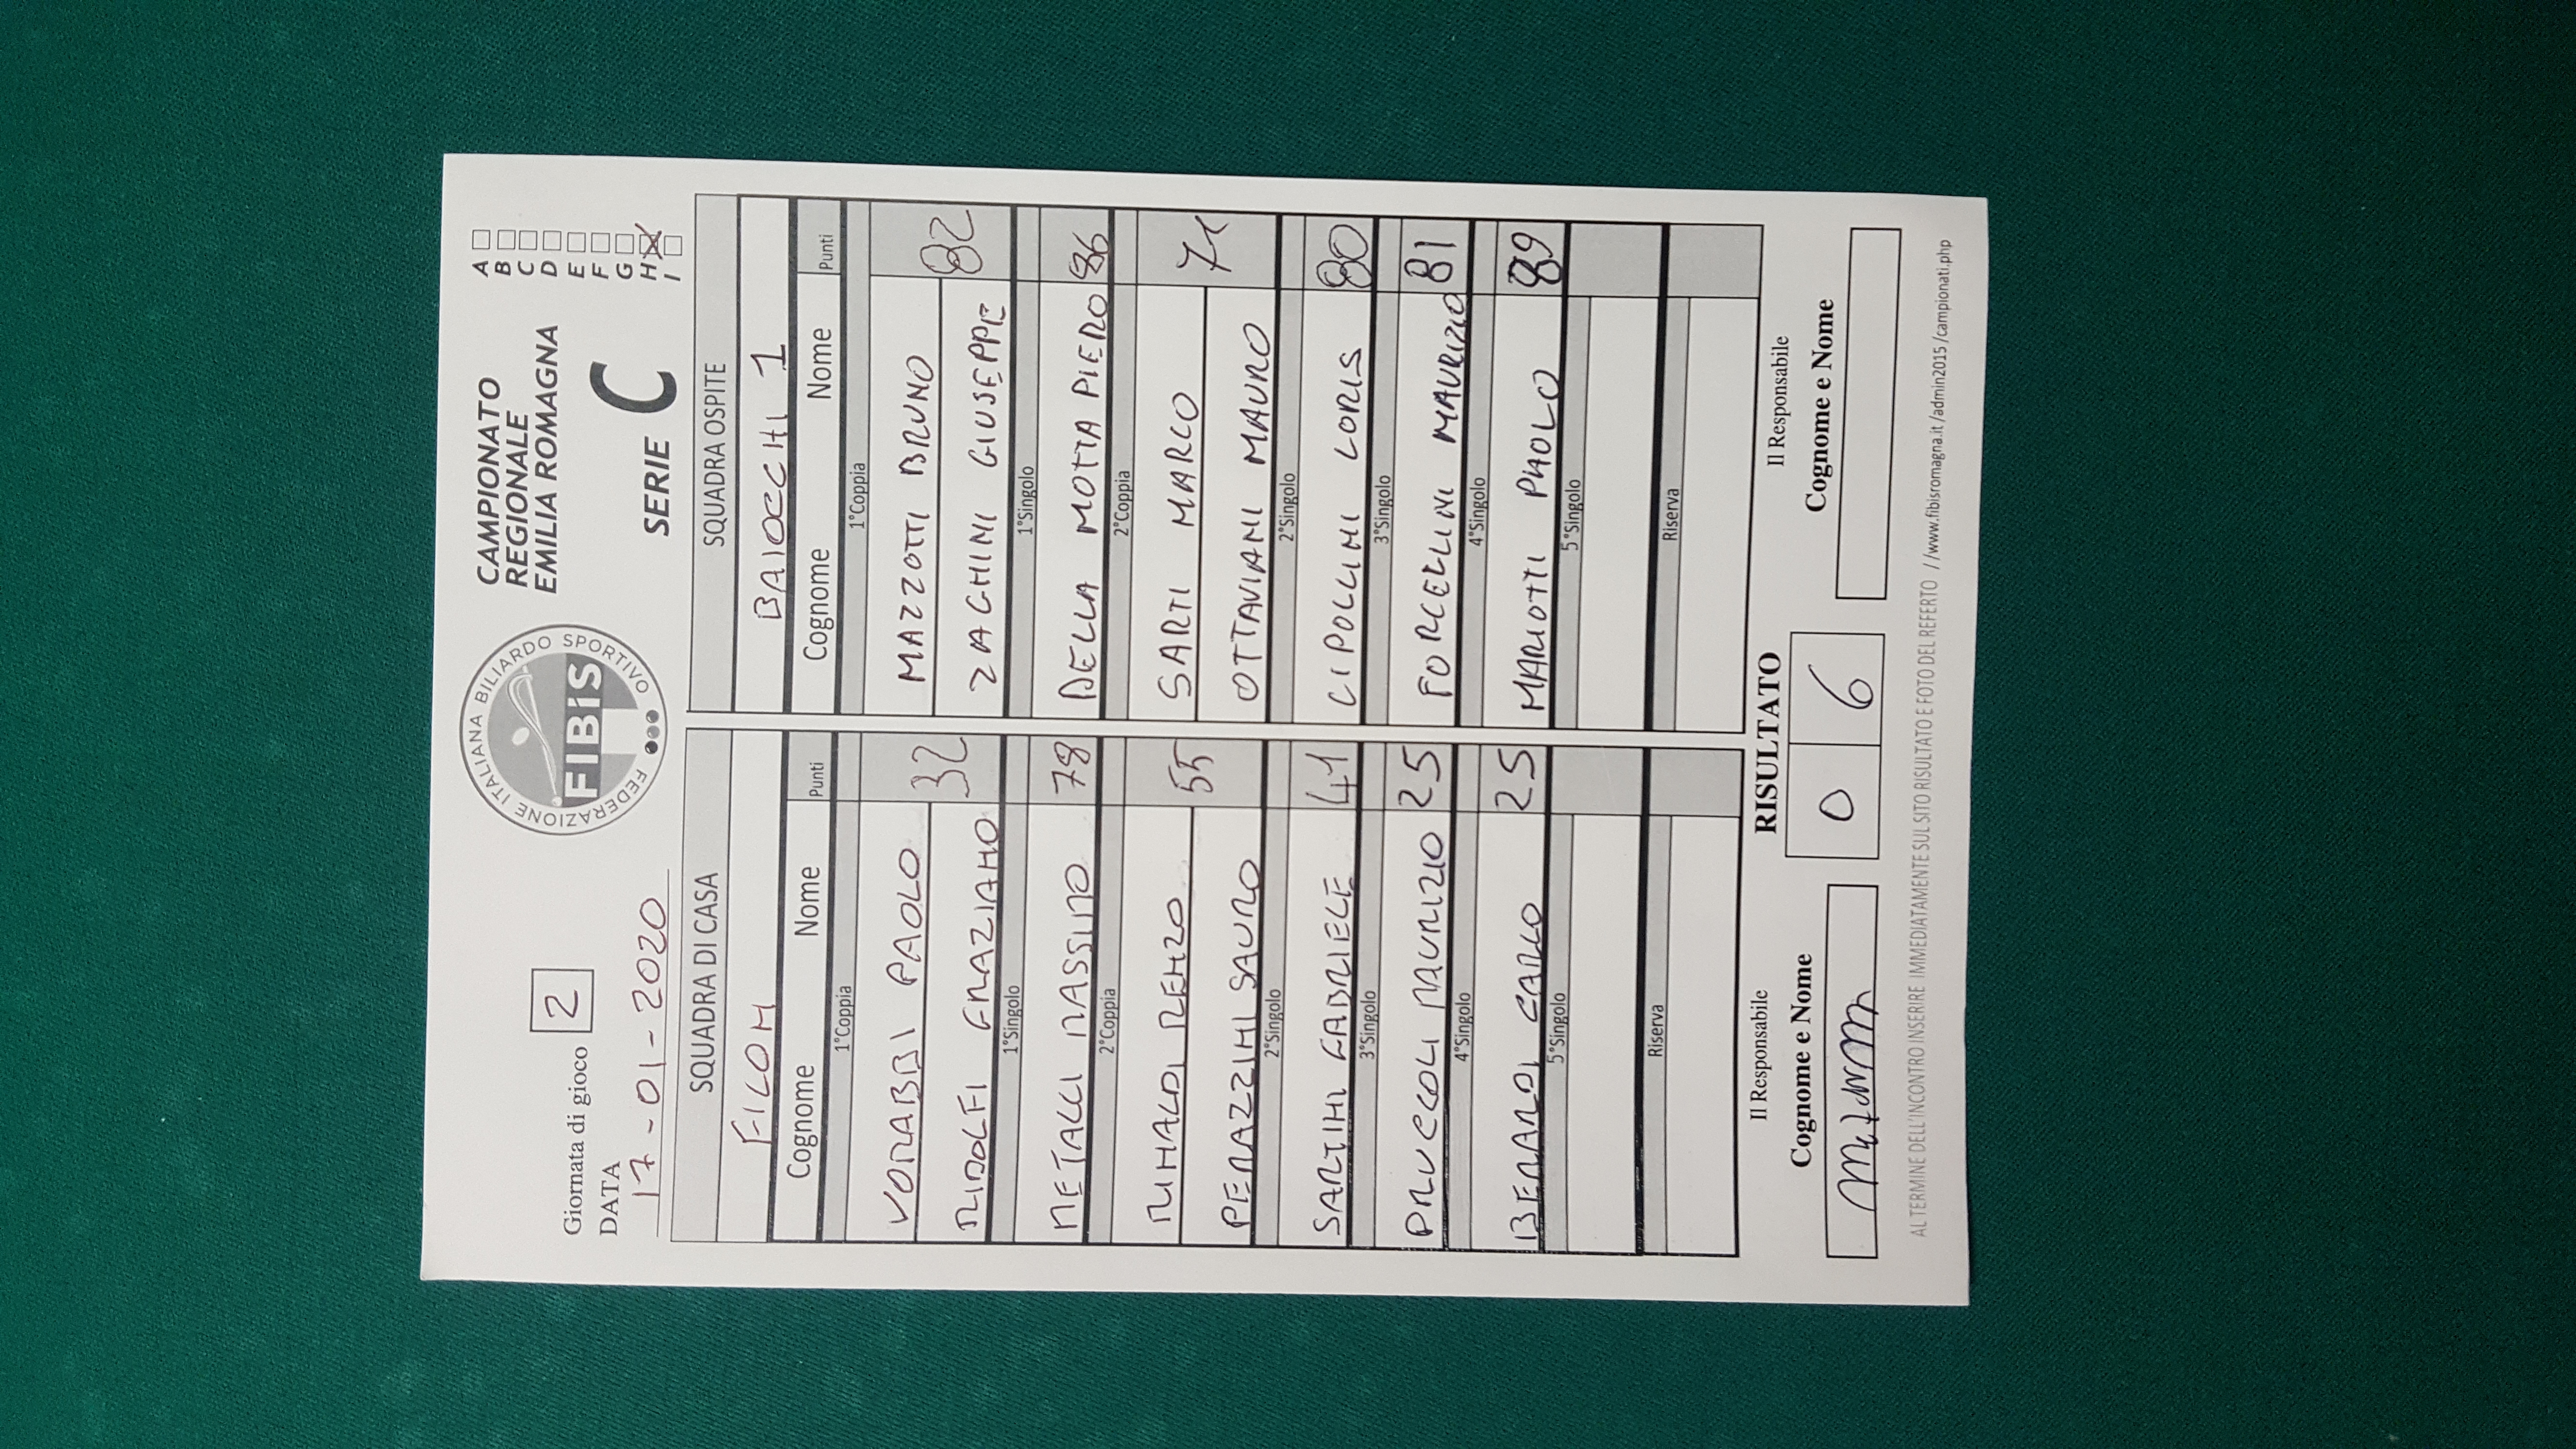 Giornata di gioco 2
DATA
17-01-2020
FEDERAZIONE ITALIANA BILIARDO SPORTIVO
FIBiS
CAMPIONATO
REGIONALE
EMILIA ROMAGNA
SERIE C
A
B
C
D
E
F
G
H X
I
SQUADRA DI CASA
FILOM
Cognome Nome Punti
1°Coppia
VORABBI PAOLO
RIDOLFI GRAZIANO 32
1°Singolo
METALLI MASSIMO 78
2°Coppia
RINALDI RENZO
PERAZZINI SAURO 55
2°Singolo
SARTINI GABRIELE 41
3°Singolo
PRUCCOLI MAURIZIO 25
4°Singolo
BERARDI CARLO 25
5°Singolo
Riserva
SQUADRA OSPITE
BAIOCCHI 1
Cognome Nome Punti
1°Coppia
MAZZOTTI BRUNO
ZAGHINI GIUSEPPE 82
1°Singolo
DELLA MOTTA PIERO 86
2°Coppia
SARTI MARCO
OTTAVIANI MAURO
2°Singolo
CIPOLLINI LORIS 80
3°Singolo
FORCELLINI MAURIZIO 81
4°Singolo
MARIOTTI PAOLO 89
5°Singolo
Riserva
Il Responsabile
Cognome e Nome
RISULTATO
0 6
Il Responsabile
Cognome e Nome
AL TERMINE DELL'INCONTRO INSERIRE IMMEDIATAMENTE SUL SITO RISULTATO E FOTO DEL REFERTO //www.fibisromagna.it/admin2015/campionati.php